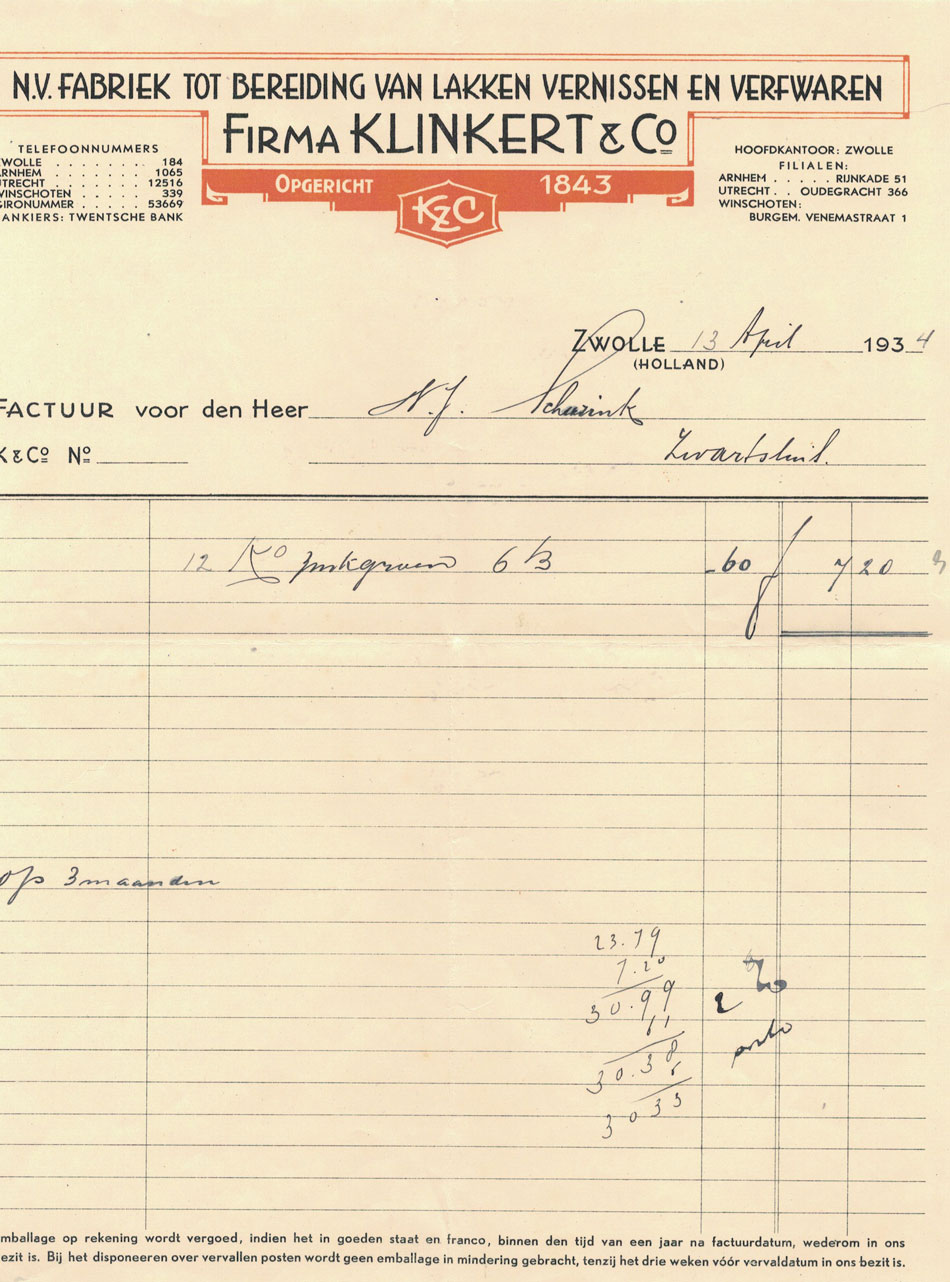 N.V. FABRIEK TOT BEREIDING VAN LAKKEN VERNISSEN EN VERFWAREN
FIRMA KLINKERT & Co
OPGERICHT 1843
KZC
TELEFOONNUMMERS
ZWOLLE . . . . . . . . 184
ARNHEM . . . . . . . 1065
UTRECHT . . . . . . . 12516
WINSCHOTEN . . . . . 339
GIRONUMMER . . . . . 53669
BANKIERS: TWENTSCHE BANK
HOOFDKANTOOR: ZWOLLE
FILIALEN:
ARNHEM . . . . . RIJNKADE 51
UTRECHT . . OUDEGRACHT 366
WINSCHOTEN:
BURGEM. VENEMASTRAAT 1
ZWOLLE 13 April 1934
(HOLLAND)
FACTUUR voor den Heer N.J. Schuurink
K & Co No
Zwartsluis.
12 Ko zinkgroen 6B -60 f 7 20
op 3 maanden
23.79
7.20
30.99
61
30.38
5
30 33
porto
emballage op rekening wordt vergoed, indien het in goeden staat en franco, binnen den tijd van een jaar na factuurdatum, wederom in ons
bezit is. Bij het disponeeren over vervallen posten wordt geen emballage in mindering gebracht, tenzij het drie weken vóór vervaldatum in ons bezit is.